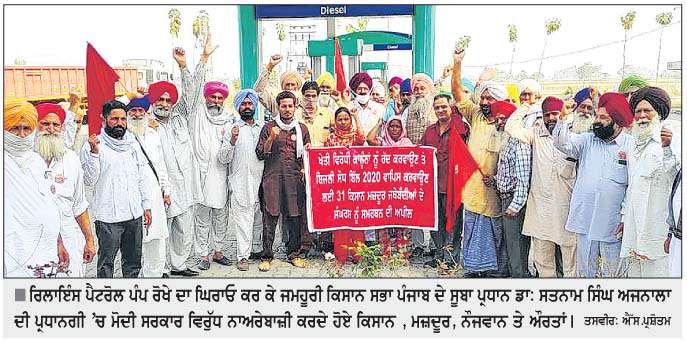 Diesel
Diesel
ਖੇਤੀ ਵਿਰੋਧੀ ਕਾਨੂੰਨਾਂ ਨੂੰ ਰੱਦ ਕਰਵਾਉਣ ਤੇ
ਬਿਜਲੀ ਸੋਧ ਬਿੱਲ 2020 ਵਾਪਿਸ ਕਰਵਾਉਣ
ਲਈ 31 ਕਿਸਾਨ ਮਜ਼ਦੂਰ ਜਥੇਬੰਦੀਆਂ ਦੇ
ਸੰਘਰਸ਼ ਨੂੰ ਸਮਰਥਨ ਦੀ ਅਪੀਲ
ਰਿਲਾਇੰਸ ਪੈਟਰੋਲ ਪੰਪ ਰੋਖੇ ਦਾ ਘਿਰਾਓ ਕਰ ਕੇ ਜਮਹੂਰੀ ਕਿਸਾਨ ਸਭਾ ਪੰਜਾਬ ਦੇ ਸੂਬਾ ਪ੍ਰਧਾਨ ਡਾ: ਸਤਨਾਮ ਸਿੰਘ ਅਜਨਾਲਾ
ਦੀ ਪ੍ਰਧਾਨਗੀ 'ਚ ਮੋਦੀ ਸਰਕਾਰ ਵਿਰੁੱਧ ਨਾਅਰੇਬਾਜ਼ੀ ਕਰਦੇ ਹੋਏ ਕਿਸਾਨ , ਮਜ਼ਦੂਰ, ਨੌਜਵਾਨ ਤੇ ਔਰਤਾਂ। ਤਸਵੀਰ: ਐੱਸ.ਪ੍ਰਸ਼ੋਤਮ